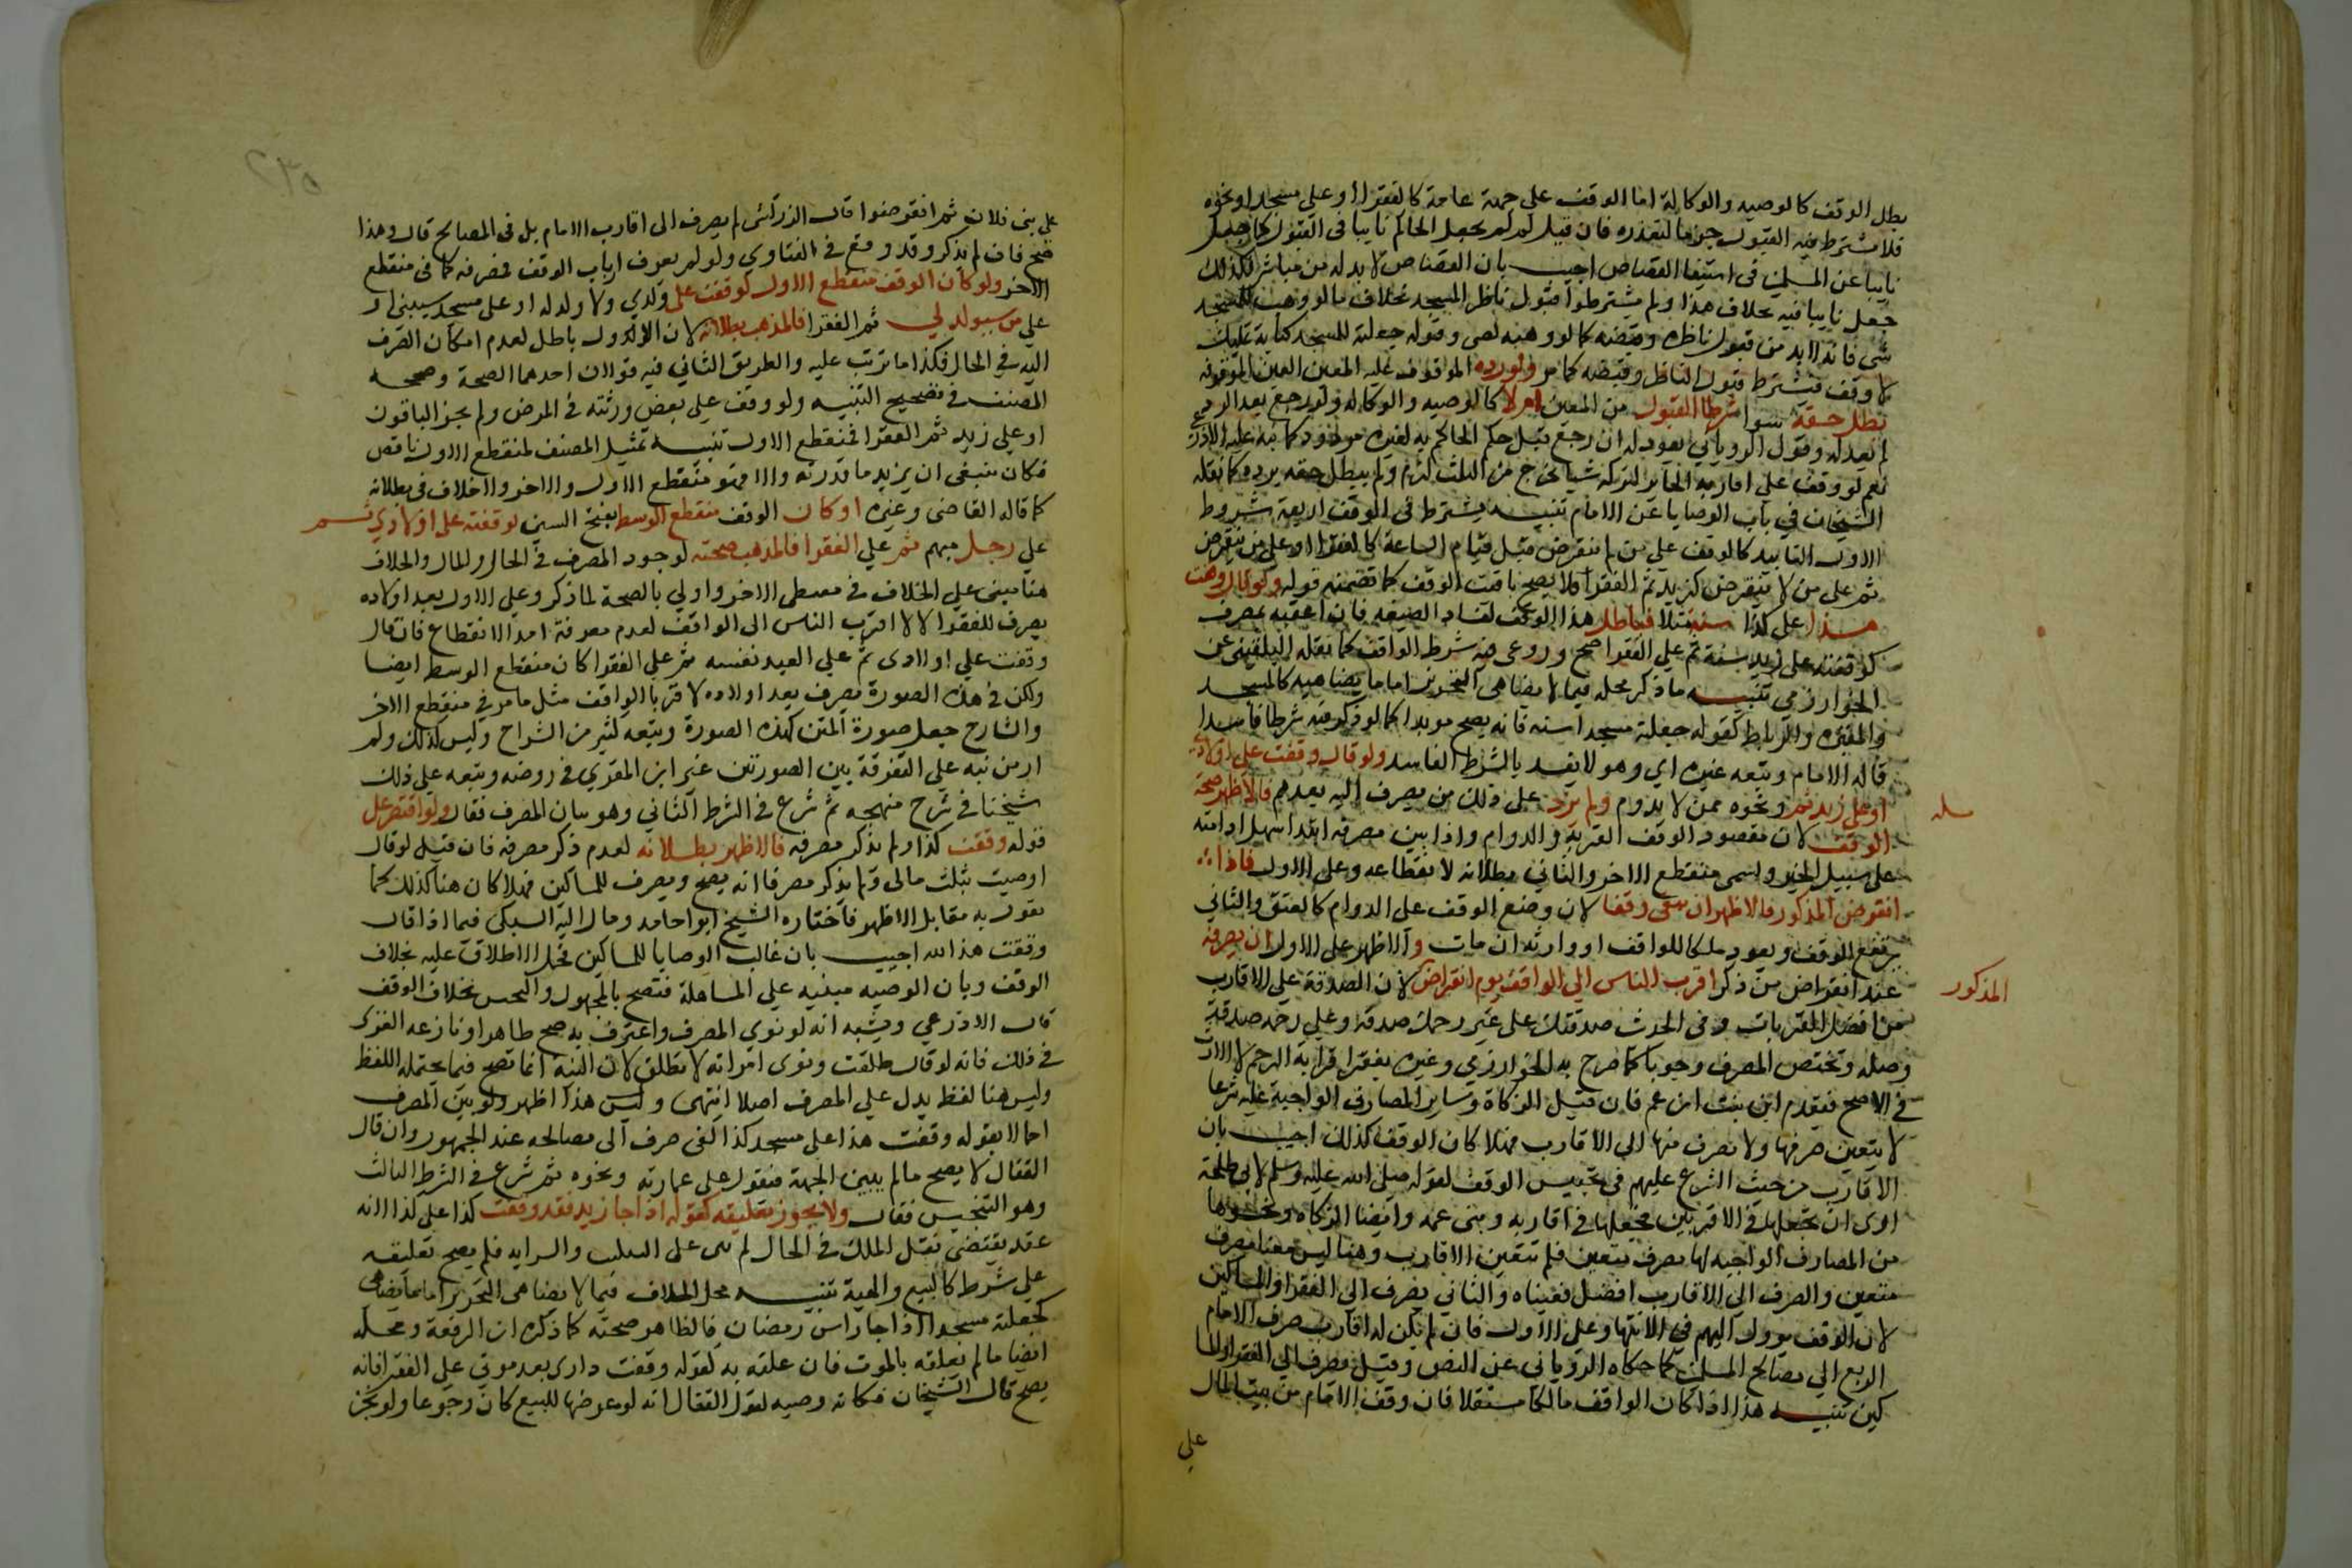 بطل الوقف كالوصيه والوكالة اما الوقف على جهة عامة كالفقرا او على مسجد او نحوه
فلا يشترط فيه القبول جزما لتعذره فان قيل لم لم يجعل الحاكم نايبا في القبول كما جعل
نايبا عن المسلمين في استيفا القصاص اجيب بان القصاص لا بد له من مباشر فلذلك
جعل نايبا فيه بخلاف هذا ولم يشترطوا قبول ناظر المسجد بخلاف ما لو وهب للمسجد
شي فانه لا بد من قبول ناظره وقبضه كما لو وهبه لصبي وقوله جعلته للمسجد كناية تمليك
لا وقف فيشترط قبول الناظر وقبضه كما مر ولو رده الموقوف عليه المعين العين الموقوفه
بطل حقه سوا شرطنا القبول من المعين ام لا كالوصيه والوكاله ولو رجع بعد الرد
لم يعد له وقول الروياني يعود له ان رجع قبل حكم الحاكم به لغيره مردود كما نبه عليه الاذرعي
نعم لو وقف على اقاربه الحايز لتركته شيا يخرج من الثلث لزم ولم يبطل حقه برده كما نقله
الشيخان في باب الوصايا عن الامام تنبيه يشترط في الوقف اربعة شروط
الاول التابيد كالوقف على من لم ينقرض قبل قيام الساعة كالفقرا او على من ينقرض
ثم على من لا ينقرض كزيد ثم الفقرا فلا يصح تاقت الوقف كما تضمنه قوله ولو قال وقفت
هذا على كذا سنة مثلا فباطل هذا الوقف لفساد الصيغه فان اعقبه بمصرف
كوقفته على زيد سنة ثم على الفقرا صح وروعي فيه شرط الواقف كما نقله البلقيني عن
الخوارزمي تنبيه ما ذكر محله فيما لا يضاهي التحرير اما ما يضاهيه كالمسجد
والمقبره والرباط كقوله جعلته مسجدا سنه فانه يصح موبدا كما لو ذكر فيه شرطا فاسدا
قاله الامام وتبعه غيره اي وهو لا يفسد بالشرط الفاسد ولو قال وقفت على اولادي
او على زيد ثم ونحوه ممن لا يدوم ولم يزد على ذلك من يصرف اليه بعدهم فالاظهر صحة
الوقف لان مقصود الوقف القربة والدوام واذا بين مصرفه ابتدا سهل ادامته
على سبيل الخير واسمي منقطع الاخر والثاني بطلانه لانقطاعه وعلى الاول فاذا
انقرض المذكور فالاظهر انه يبقى وقفا لان وضع الوقف على الدوام كالعتق والثاني
يرتفع الوقف ويعود ملكا للواقف او وارثه ان مات والاظهر على الاول ان يصرفه
عند انقراض من ذكر اقرب الناس الى الواقف يوم انقراض لان الصدقة على الاقارب
المذكور
من افضل القربات وفي الحديث صدقتك على غير رحمك صدقة وعلى رحمك صدقة
وصلة ويختص المصرف وجوبا كما صرح به الخوارزمي وغيره بفقرا قرابة الرحم لا الارث
في الاصح فيقدم ابن بنت على ابن عم فان قيل الزكاة وساير المصارف الواجبة عليه شرعا
لا يتعين صرفها ولا يصرف منها الى الاقارب فهلا كان الوقف كذلك اجيب بان
الاقارب من حث الشرع عليهم في تحبيس الوقف لقوله صلى الله عليه وسلم لابي طلحة
ارى ان تجعلها في الاقربين فجعلها في اقاربه وبني عمه وايضا الزكاه ونحوها
من المصارف الواجبه لها مصرف متعين فلم تتعين الاقارب وهنا ليس معنا مصرف
متعين والصرف الى الاقارب افضل فعيناه والثاني يصرف الى الفقرا والمساكين
لان الوقف يوول اليهم في الانتها وعلى الاول فان لم يكن له اقارب صرف الامام
الريع الى مصالح المسلمين كما حكاه الروياني عن النص وقيل يصرف الى الفقرا والمسا
كين تنبيه هذا اذا كان الواقف مالكا مستقلا فان وقف الامام من بيت المال
على
على بني فلان ثم انقرضوا قال الزركشي لم يصرف الى اقارب الامام بل في المصالح قال وهذا
صح فان لم يذكر وقد وقع في الفتاوي ولو لم يعرف ارباب الوقف فمصرفه كما في منقطع
الاخر ولو كان الوقف منقطع الاول كوقفت على ولدي ولا ولد له او على مسجد سيبنى او
على من سيولد لي ثم الفقرا فالمذهب بطلانه لان الاول باطل لعدم امكان الصرف
اليه في الحال فكذا ما ترتب عليه والطريق الثاني فيه قولان احدهما الصحة وصححه
المصنف في تصحيح التنبيه ولو وقف على بعض ورثته في المرض ولم يجز الباقون
او على زيد ثم الفقرا فمنقطع الاول تنبيه تمثيل المصنف لمنقطع الاول ناقص
فكان ينبغي ان يزيد ما قدرته والا فهو منقطع الاول والاخر ولا خلاف في بطلانه
كما قاله القاضي وغيره او كان الوقف منقطع الوسط بفتح السين كوقفته على اولادي ثم
على رجل مبهم ثم على الفقرا فالمذهب صحته لوجود المصرف في الحال والمال والخلاف
هنا مبني على الخلاف في منقطع الاخر واولى بالصحة لما ذكر وعلى الاول بعد اولاده
يصرف للفقرا لا لاقرب الناس الى الواقف لعدم معرفة امد الانقطاع فان قال
وقفت على اولادي ثم على العبد نفسه ثم على الفقرا كان منقطع الوسط ايضا
ولكن في هذه الصورة يصرف بعد اولاده لاقربا الواقف مثل ما مر في منقطع الاخر
والشارح جعل صورة المتن كهذه الصورة وتبعه كثير من الشراح وليس كذلك ولم
ار من نبه على التفرقة بين الصورتين غير ابن المقري في روضه وتبعه على ذلك
شيخنا في شرح منهجه ثم شرع في الشرط الثاني وهو بيان المصرف فقال ولو اقتصر على
قوله وقفت كذا ولم يذكر مصرفه فالاظهر بطلانه لعدم ذكر مصرفه فان قيل لو قال
اوصيت بثلث مالي ولم يذكر مصرفا انه يصح ويصرف للمساكين فهلا كان هنا كذلك كما
يقول به مقابل الاظهر فاختاره الشيخ ابو حامد ومال اليه السبكي فيما اذا قال
وقفت هذا لله اجيب بان غالب الوصايا للمساكين فحمل الاطلاق عليه بخلاف
الوقف وبان الوصيه مبنيه على المساهلة فتصح بالمجهول والنجس بخلاف الوقف
قال الاذرعي ويشبه انه لو نوى المصرف واعترف به صح ظاهرا ونازعه الغزي
في ذلك فانه لو قال طلقت ونوى امراته لا تطلق لان النيه انما تصح فيما يحتمله اللفظ
وليس هنا لفظ يدل على المصرف اصلا انتهى وليس هذا اظهر ولو بين المصرف
اجمالا بقوله وقفت هذا على مسجد كذا كفى صرف الى مصالحه عند الجمهور وان قال
القفال لا يصح ما لم يبين الجهة فيقول على عمارته ونحوه ثم شرع في الشرط الثالث
وهو التنجيز فقال ولا يجوز تعليقه كقوله اذا جا زيد فقد وقفت كذا على كذا لانه
عقد يقتضي نقل الملك في الحال لم يبن على التغليب والسرايه فلم يصح تعليقه
على شرط كالبيع والهبة تنبيه محل الخلاف فيما لا يضاهي التحرير اما ما يضاهيه
كجعلته مسجدا اذا جا راس رمضان فالظاهر صحته كما ذكره ابن الرفعة ومحله
ايضا ما لم يعلقه بالموت فان علقه به كقوله وقفت داري بعد موتي على الفقرا فانه
يصح قال الشيخان فكانه وصيه لقول القفال انه لو عرضها للبيع كان رجوعا ولو نجز